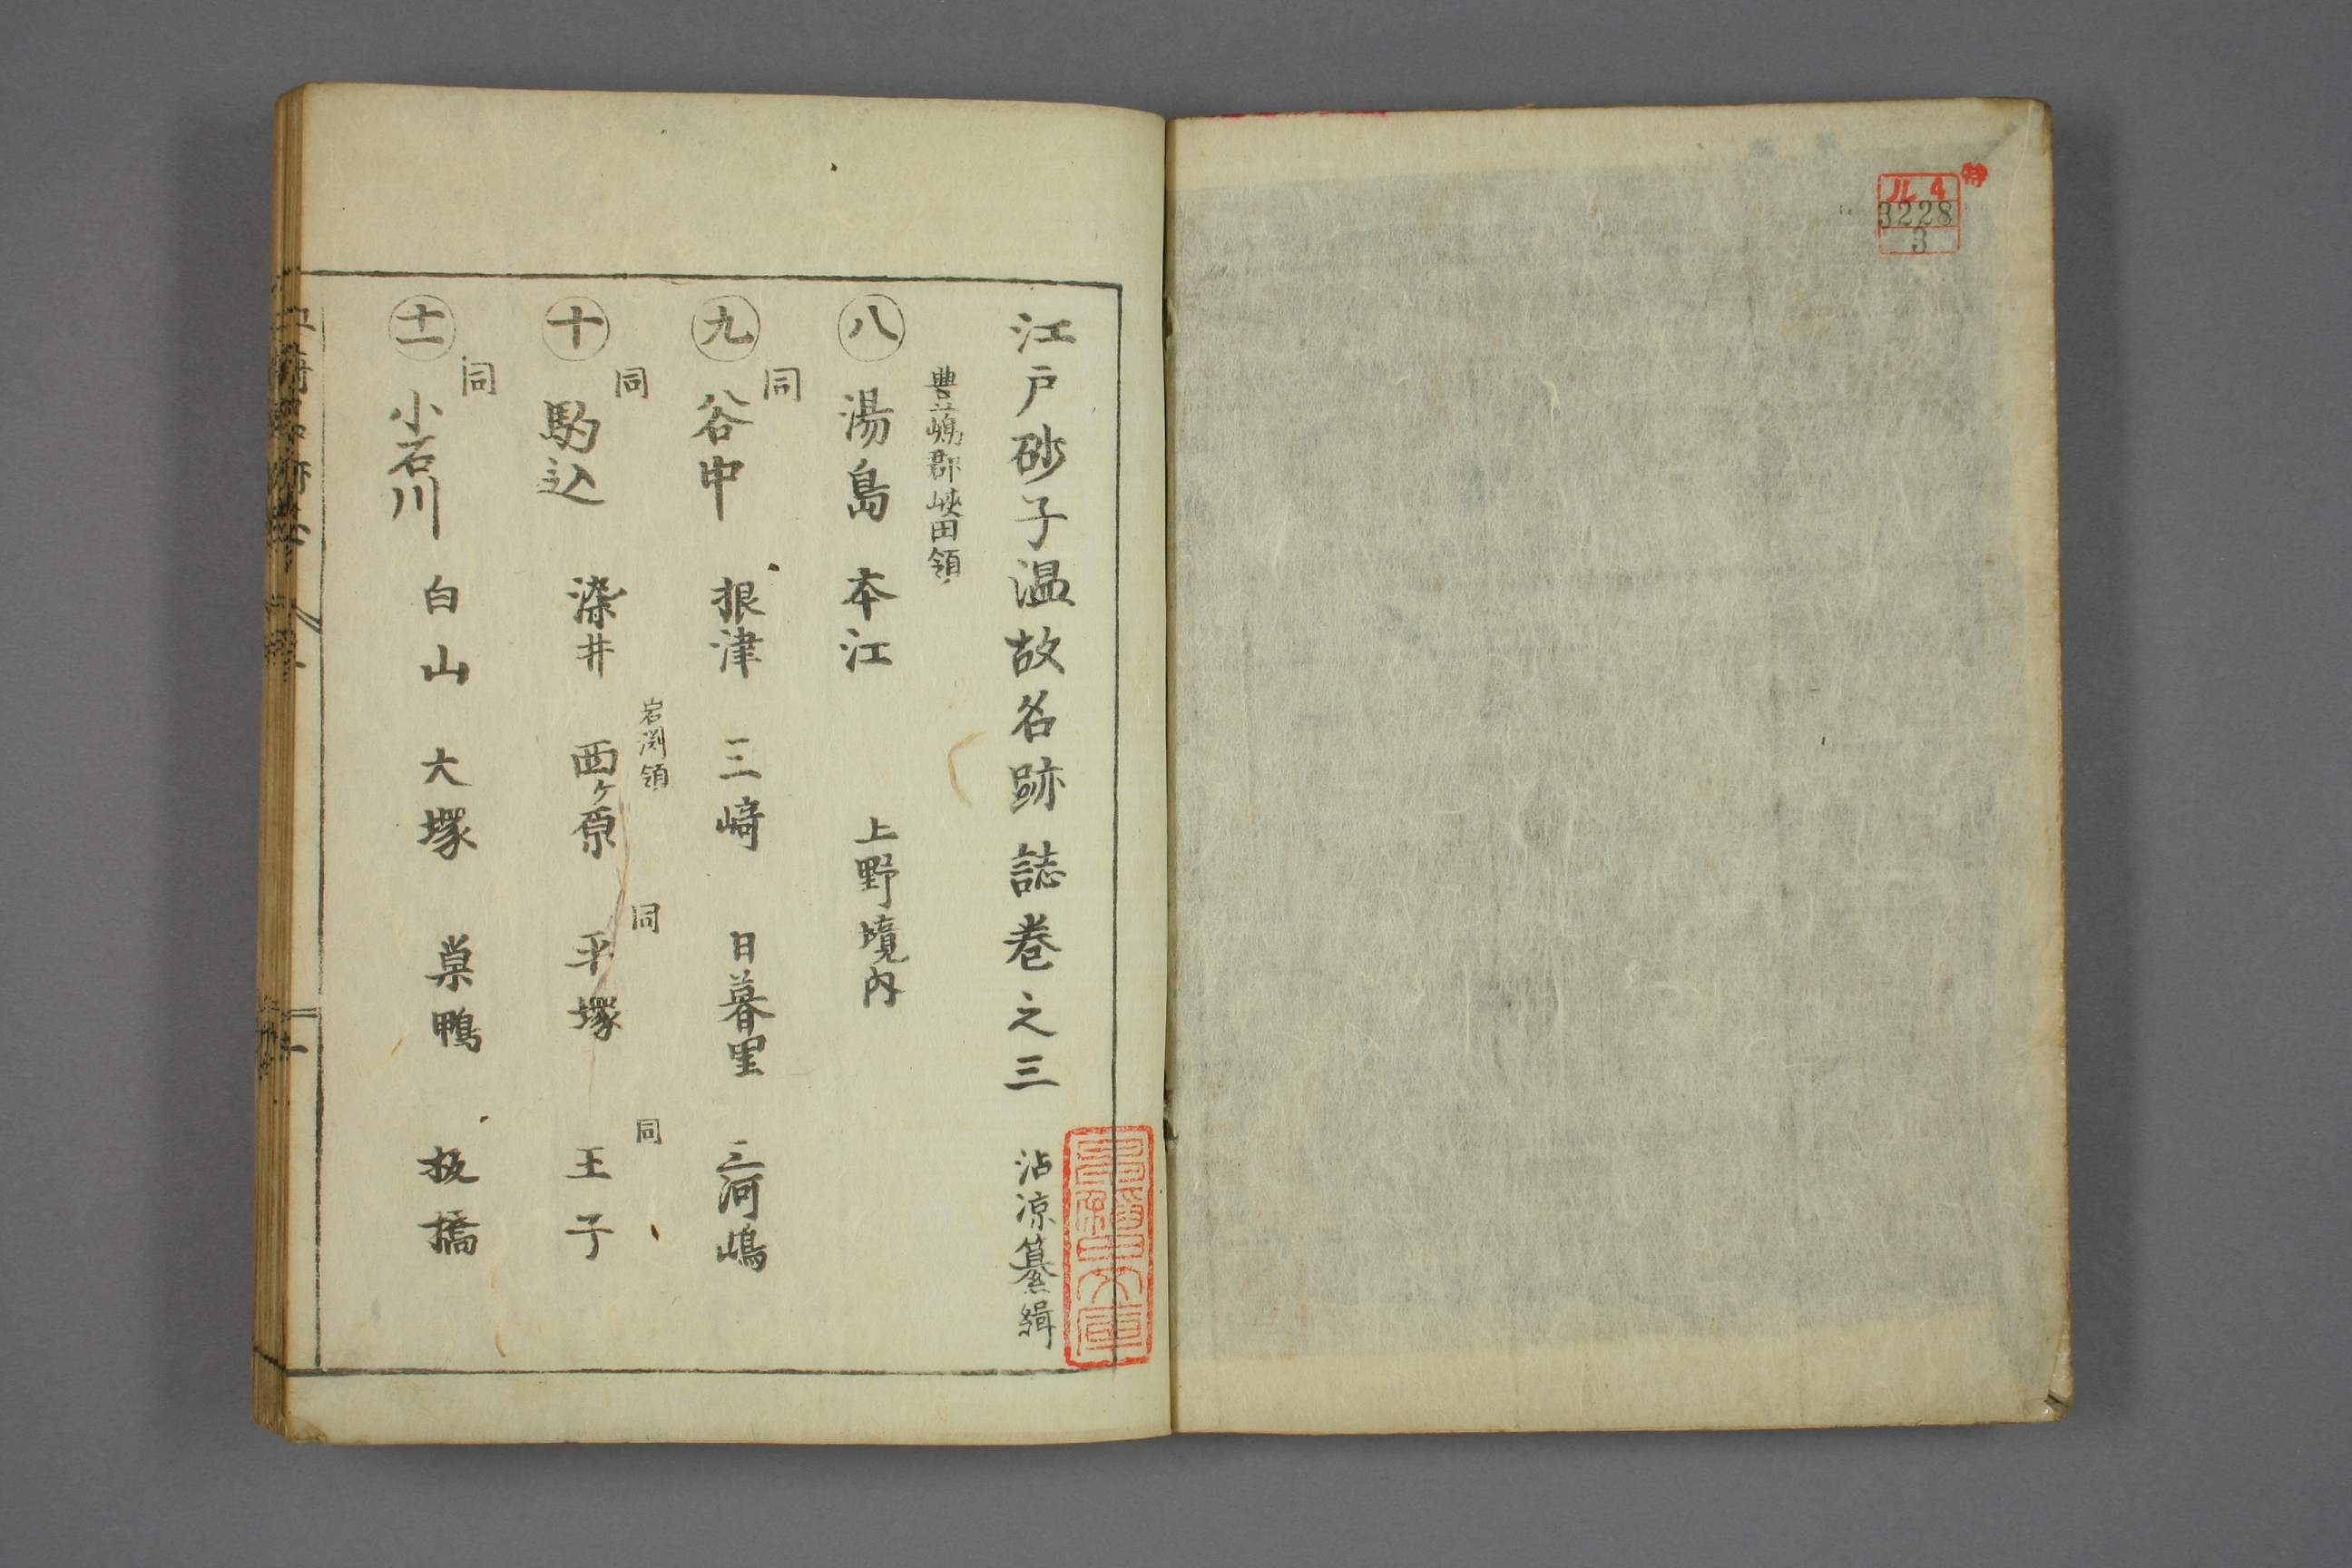 特
ル 4
3228
3
江戸砂子温故名跡誌巻之三 沾凉纂緝
豊嶋郡峡田領
八 湯島 本江 上野境内
同
九 谷中 根津 三﨑 日暮里 三河嶋
同 岩渕領 同 同
十 駒込 染井 西ケ原 平塚 王子
同
十一 小石川 白山 大塚 巣鴨 板橋